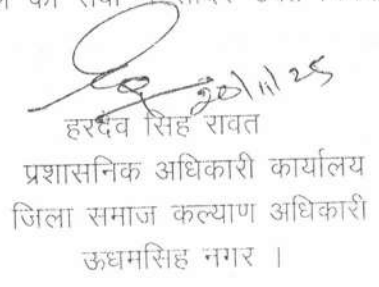 की सेवा
20/11/25
हरदेव सिंह रावत
प्रशासनिक अधिकारी कार्यालय
जिला समाज कल्याण अधिकारी
ऊधमसिह नगर ।